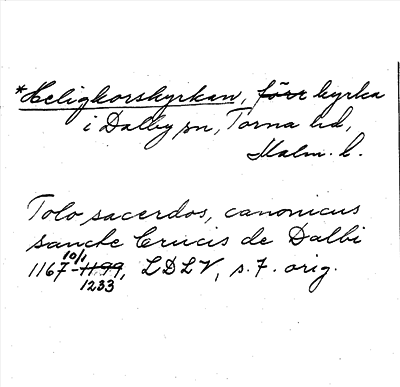 *Heligkorskyrkan, förr kyrka
i Dalby sn, Torna hd,
Malm. l.
Tolo sacerdos, canonicus
sancte Crucis de Dalbi
1167 10/1 - 1199, LDLV, s. 7. orig.
1233